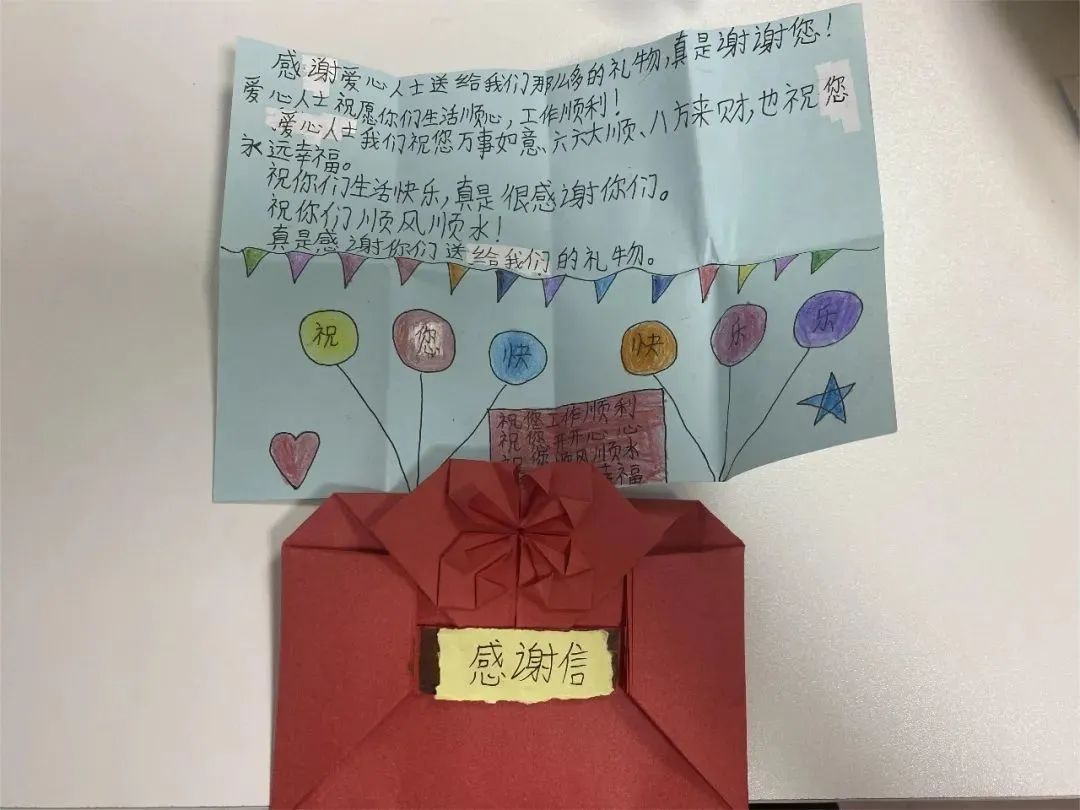 感谢爱心人士送给我们那么多的礼物,真是谢谢您!
爱心人士祝愿你们生活顺心,工作顺利!
爱心人士我们祝您万事如意、六六大顺、八方来财,也祝您
永远幸福。
祝你们生活快乐,真是很感谢你们。
祝你们顺风顺水!
真是感谢你们送给我们的礼物。
祝您快快乐乐
祝您工作顺利
祝您开开心心
祝您顺风顺水
幸福
感谢信